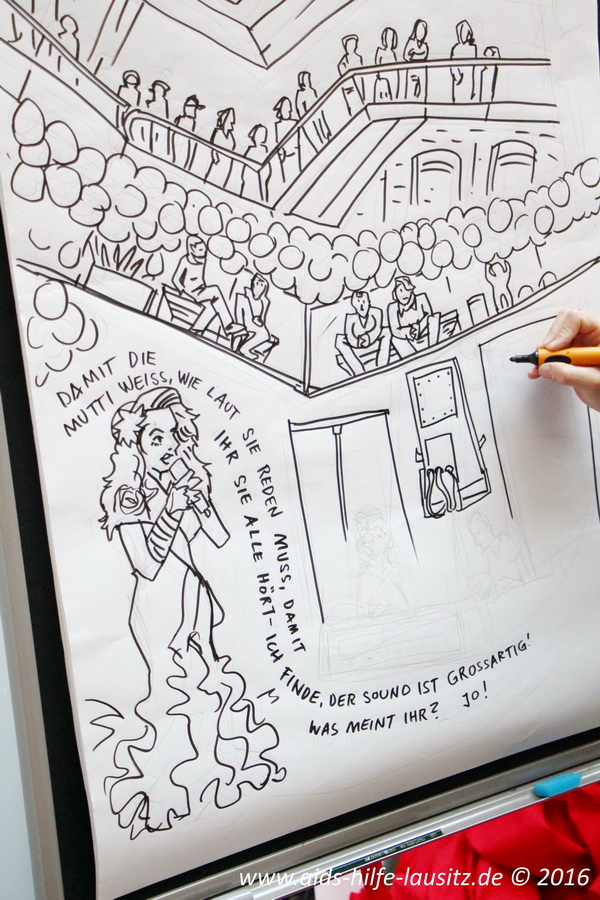 DAMIT DIE
MUTTI WEISS, WIE LAUT SIE REDEN MUSS, DAMIT
IHR SIE ALLE HÖRT - ICH FINDE, DER SOUND IST GROSSARTIG!
WAS MEINT IHR? JO!
www.aids-hilfe-lausitz.de © 2016